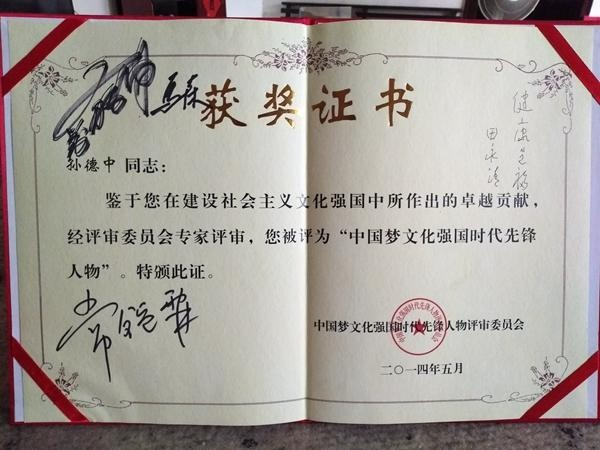 获奖证书
马森
健康是福
田永清
孙德中 同志：
鉴于您在建设社会主义文化强国中所作出的卓越贡献，
经评审委员会专家评审，您被评为“中国梦文化强国时代先锋
人物”。特颁此证。
中国梦文化强国时代先锋人物评审委员会
二〇一四年五月